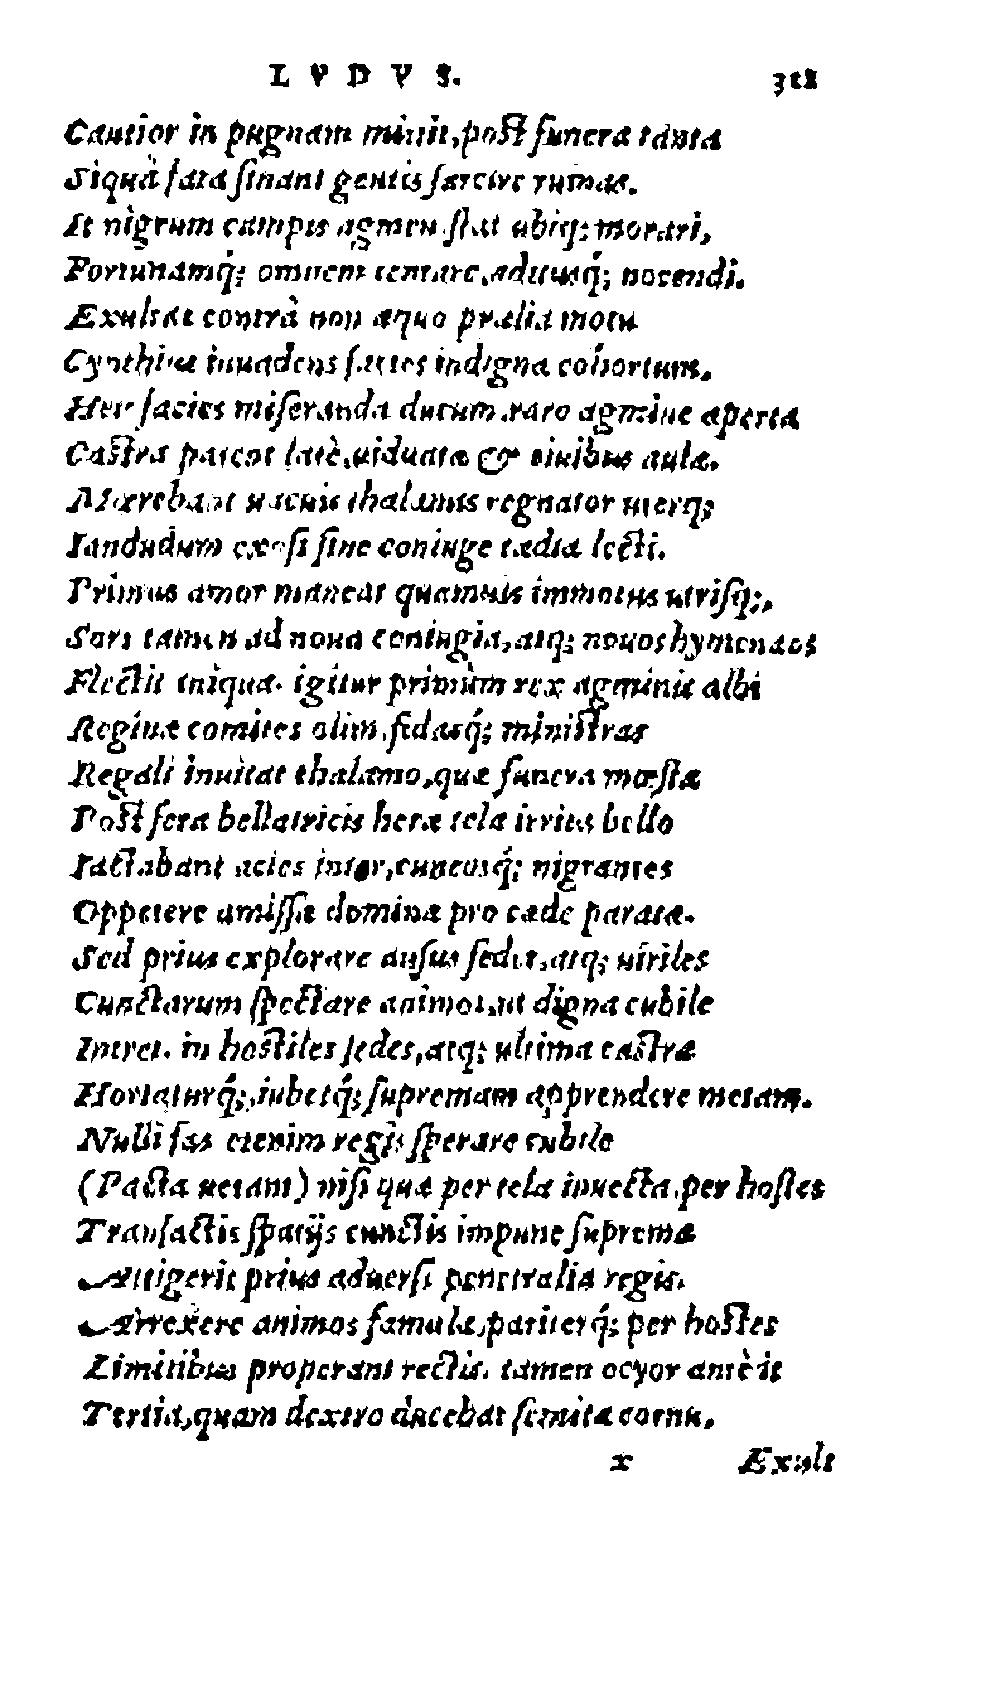 LVDVS. 321
Cautior in pugnam minit, post funera tanta
Siquà fata sinant gentis sarcire ruinas.
It nigrum campis agmen. stat ubiq; morari,
Fortunamq́; omnem tentare, aditusq́; nocendi.
Exultat contrà non æquo prælia motu
Cynthius inuadens facies indigna cohortum.
Heu facies miseranda ducum. raro agmine aperta
Castra patent latè, uiduatæ & ciuibus aulæ.
Mœrebant uacuis thalamis regnator uterq;
Iandudum exosi sine coniuge tædia lecti.
Primus amor maneat quamuis immotus utrisq;,
Sors tamen ad noua coniugia, atq; nouos hymenæos
Flectit iniqua. igitur primùm rex agminis albi
Reginæ comites olim, fidasq́; ministras
Regali inuitat thalamo, quæ funera mœstæ
Post fera bellatricis heræ tela irrita bello
Iactabant acies inter, cuneosq́; nigrantes
Oppetere amissæ dominæ pro cæde paratæ.
Sed prius explorare ausus sedit, atq; uiriles
Cunctarum spectare animos, ut digna cubile
Intret. in hostiles sedes, atq; ultima castra
Hortaturq́;, iubetq́; supremam apprendere metam.
Nulli fas etenim regis sperare cubile
(Pacta uetant) nisi quæ per tela inuecta, per hostes
Transactis spatijs cunctis impune supremæ
Attigerit prius aduersi penetralia regis.
Arrexere animos famulæ, pariterq́; per hostes
Limitibus properant rectis. tamen ocyor anteit
Tertia, quam dextro ducebat semita cornu.
x Exult